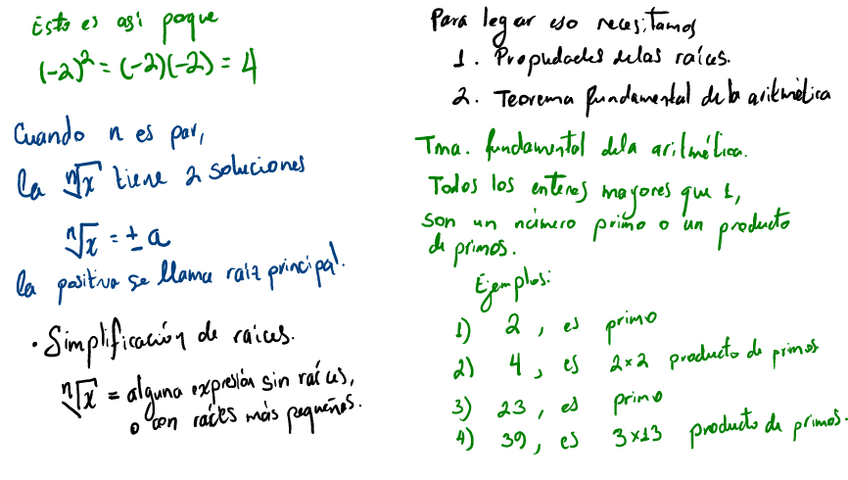 Esto es asi poque
(-2)² = (-2)(-2) = 4
Cuando n es par,
la ⁿ√x tiene 2 soluciones
ⁿ√x = ± a
la positiva se llama raiz principal.
• Simplificación de raices.
ⁿ√x = alguna expresión sin raíces,
o con raíces más pequeñas.
Para legar eso necesitamos
1. Propiedades delas raíces.
2. Teorema fundamental dela aritmética
Tma. fundamental dela aritmética.
Todos los enteros mayores que 1,
son un número primo o un producto
de primos.
Ejemplos:
1) 2, es primo
2) 4, es 2×2 producto de primos
3) 23, es primo
4) 39, es 3×13 producto de primos.